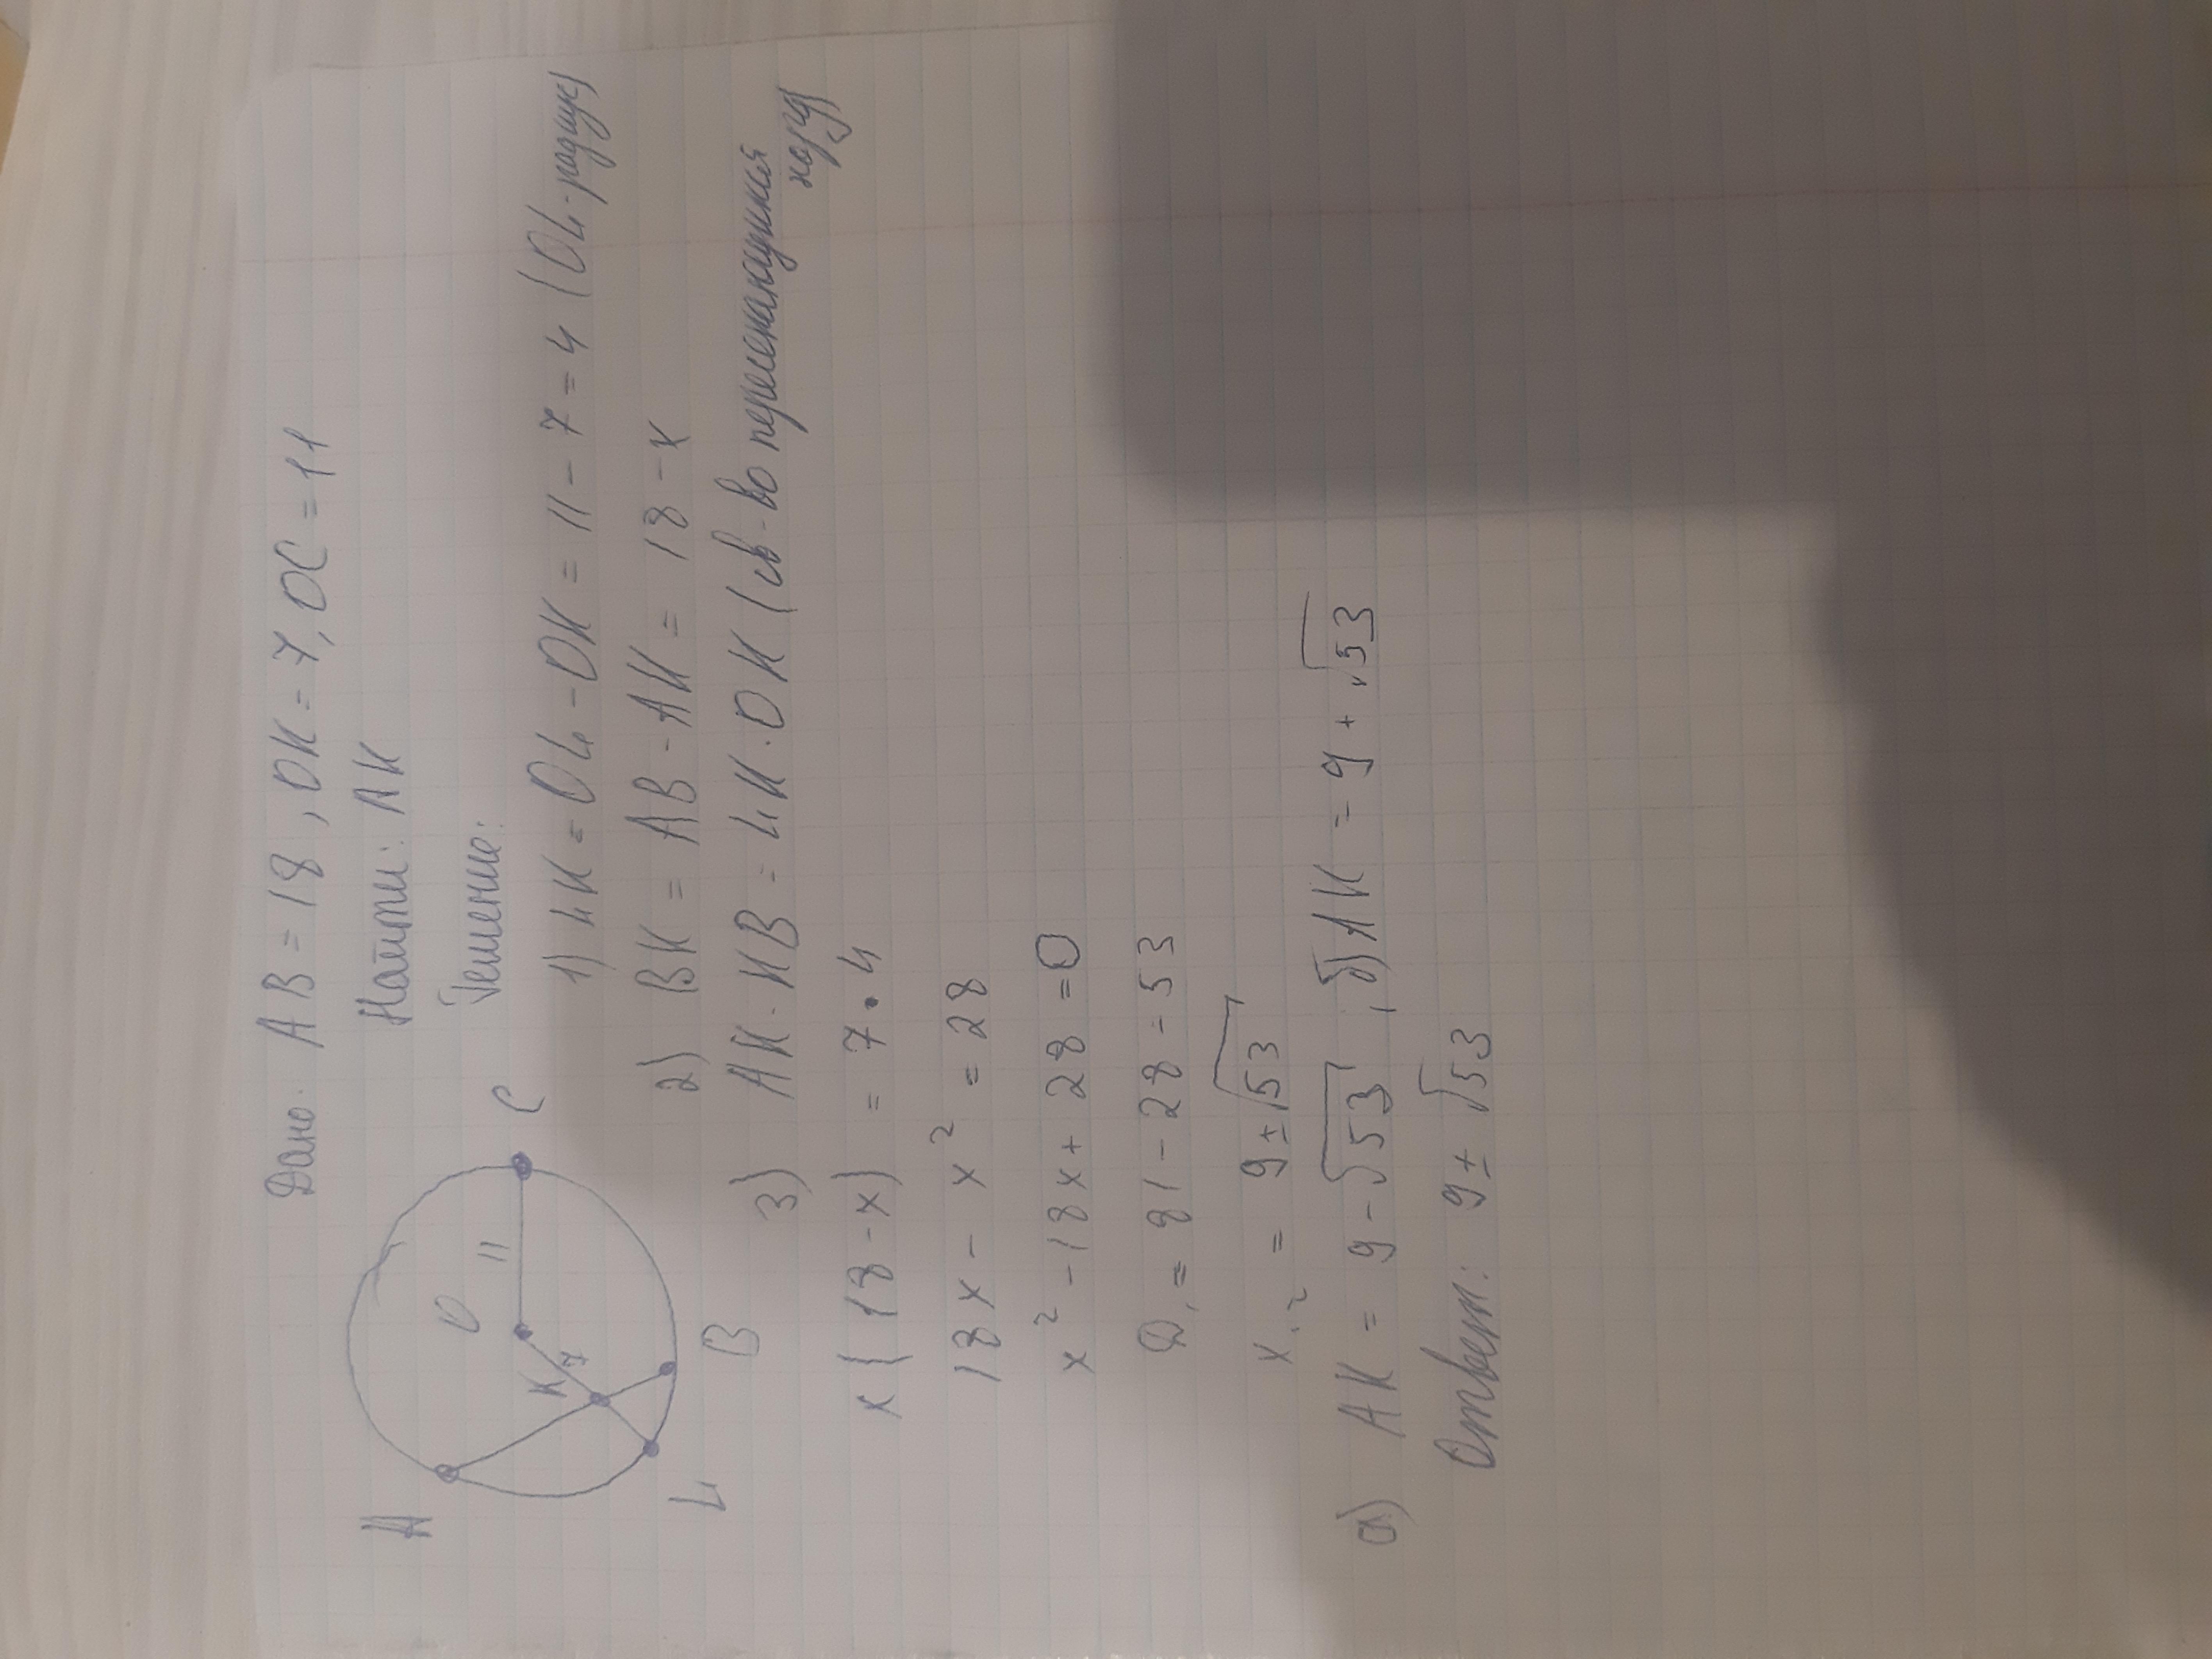 Дано: AB = 18, OK = 7, OC = 11
Найти: AK
Решение:
A
O
11
C
K
7
L
B
1) LK = OL - OK = 11 - 7 = 4 (OL - радиус)
2) BK = AB - AK = 18 - x
3) AK · KB = LK · OK (св-во пересекающихся
хорд)
x (18 - x) = 7 · 4
18x - x² = 28
x² - 18x + 28 = 0
D₁ = 81 - 28 = 53
x₁,₂ = 9 ± √53
а) AK = 9 - √53, б) AK = 9 + √53
Ответ: 9 ± √53